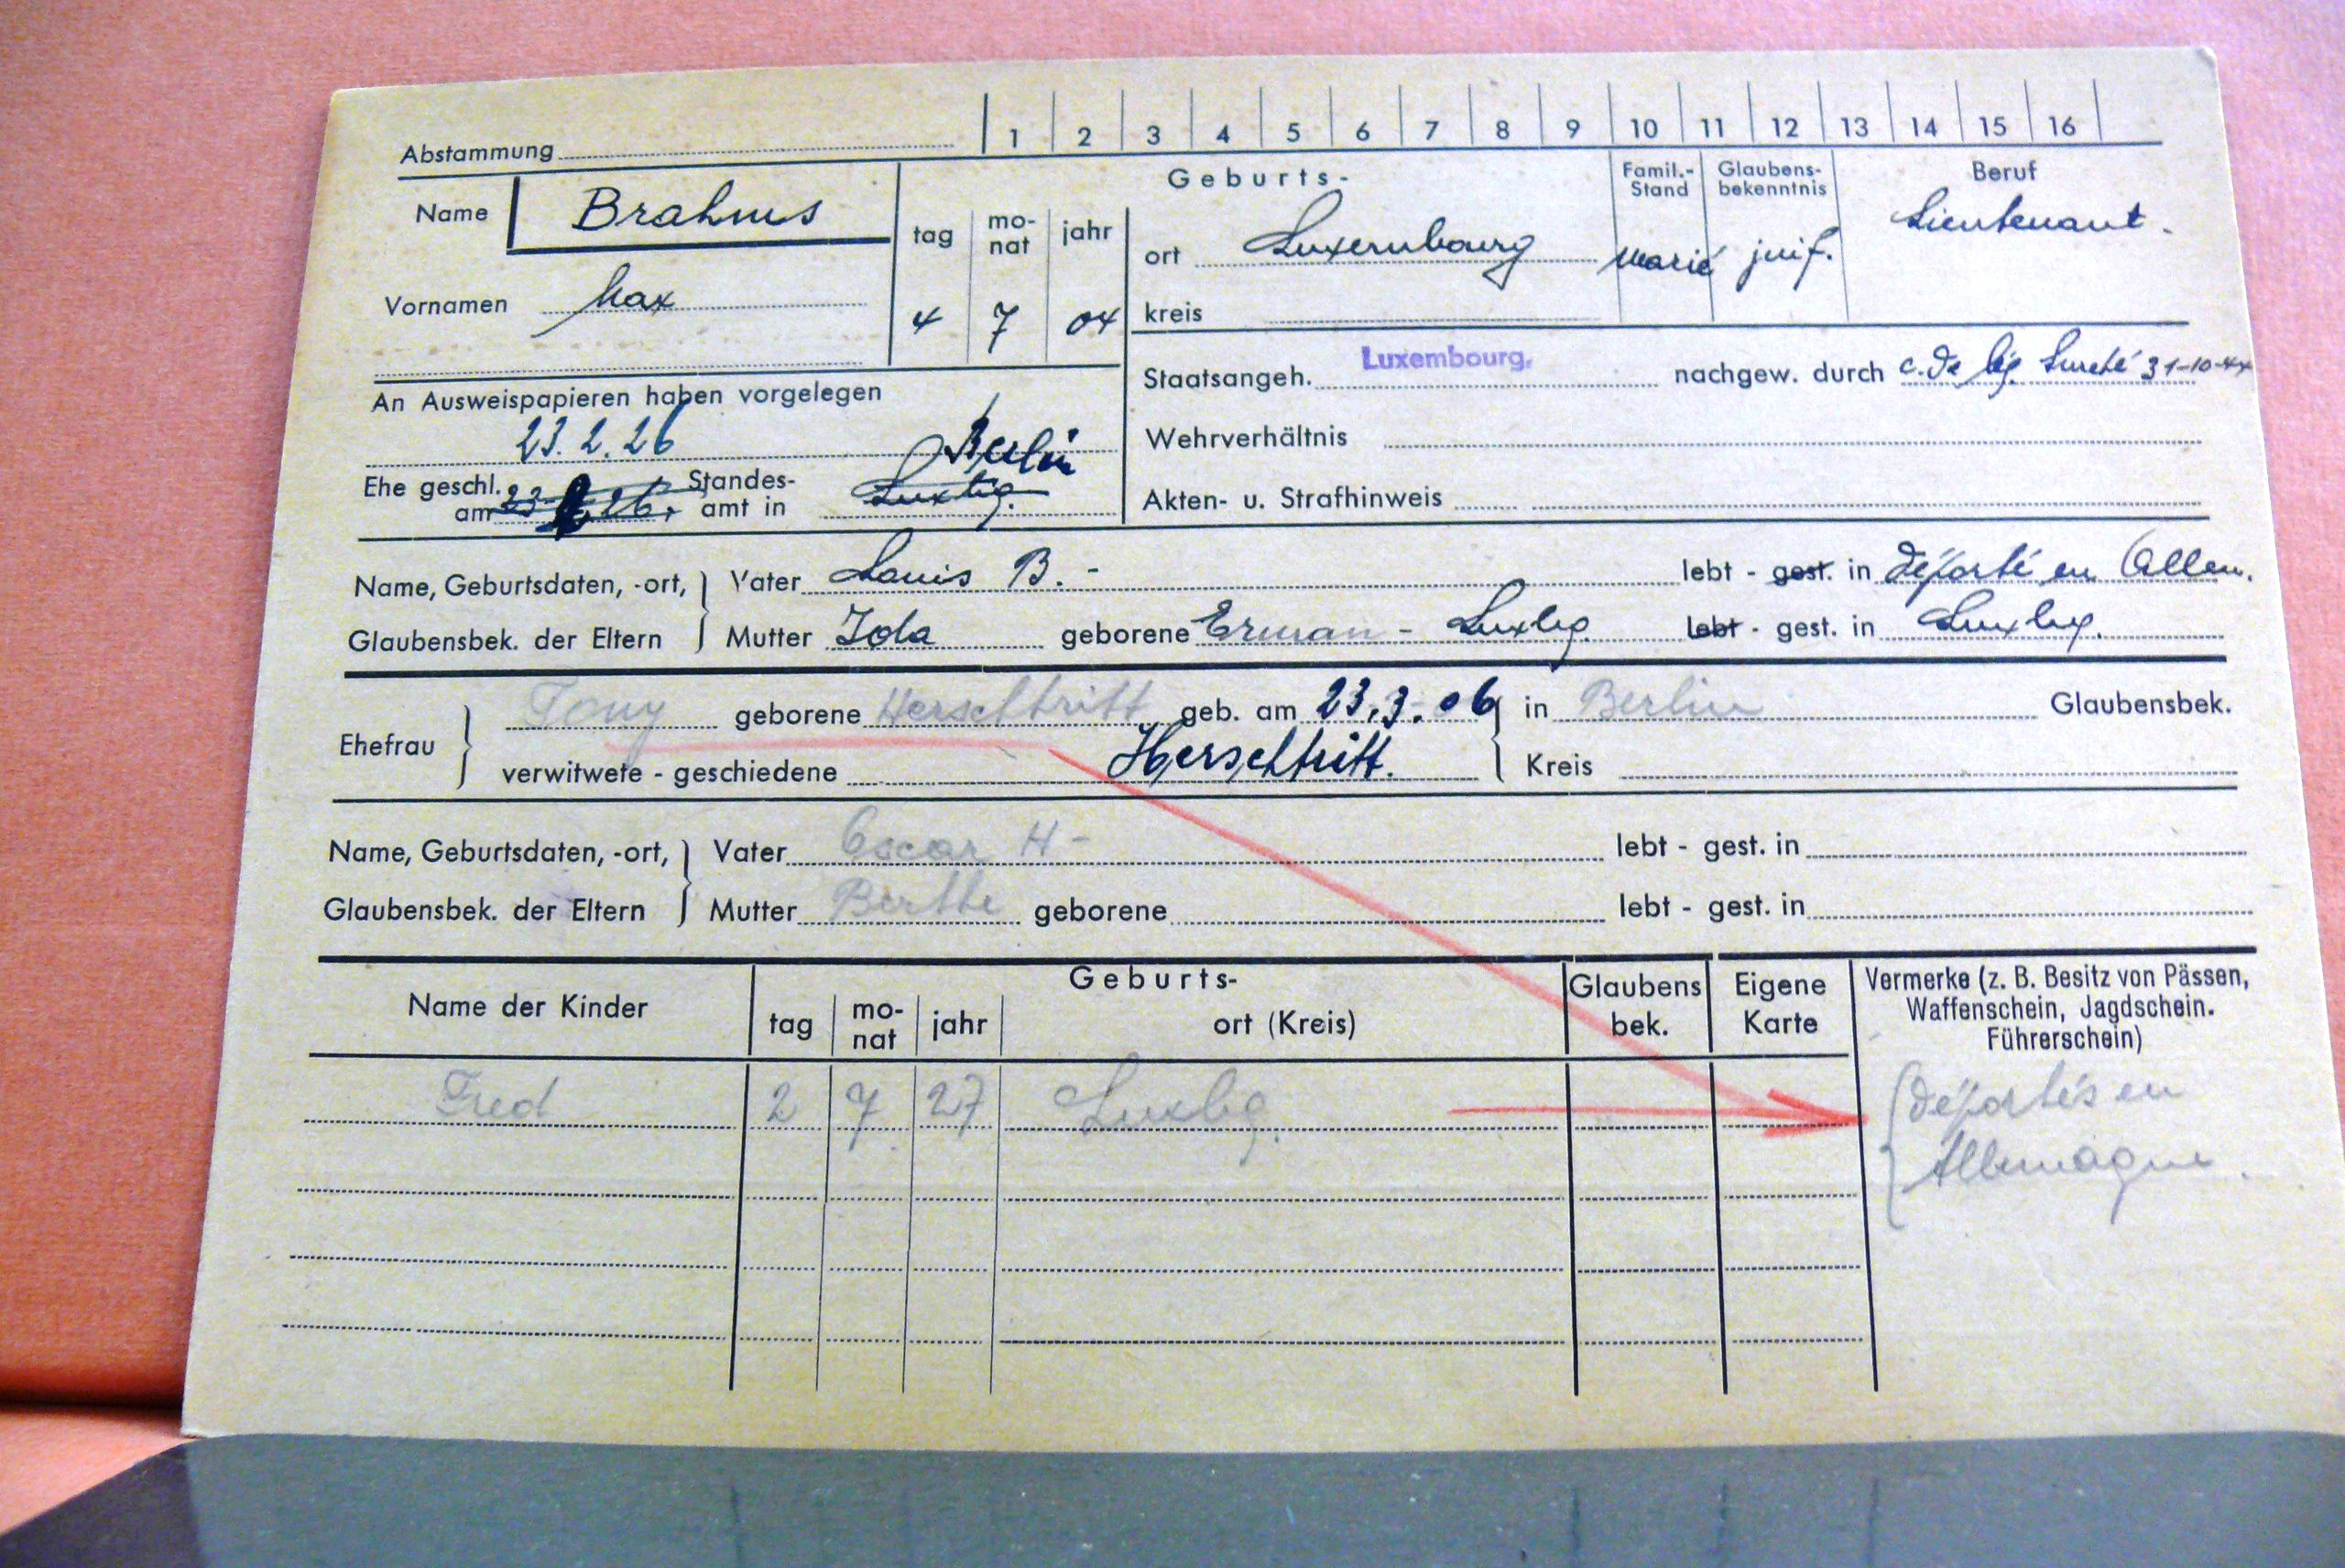 Abstammung 1 2 3 4 5 6 7 8 9 10 11 12 13 14 15 16
Name Brahms
Vornamen Max
Geburts-
tag mo-nat jahr
4 7 04
ort Luxembourg
kreis
Famil.-Stand
marié
Glaubens-bekenntnis
juif.
Beruf
Lieutenant.
An Ausweispapieren haben vorgelegen
23.2.26
Berlin
Ehe geschl. am 23 26. Standes-amt in Luxbg.
Staatsangeh. Luxembourg. nachgew. durch c. de lég. Sureté 31-10-44
Wehrverhältnis
Akten- u. Strafhinweis
Name, Geburtsdaten, -ort, Vater Louis B. - lebt - gest. in déporté en Allem.
Glaubensbek. der Eltern Mutter Ida geborene Erman - Luxbg. lebt - gest. in Luxbg.
Ehefrau Tony geborene Herschtritt geb. am 23.3.06 in Berlin Glaubensbek.
verwitwete - geschiedene Herschtritt. Kreis
Name, Geburtsdaten, -ort, Vater Oscar H - lebt - gest. in
Glaubensbek. der Eltern Mutter Berthe geborene lebt - gest. in
Name der Kinder
Geburts-
tag mo-nat jahr ort (Kreis)
Glaubens bek.
Eigene Karte
Vermerke (z. B. Besitz von Pässen,
Waffenschein, Jagdschein.
Führerschein)
Fred 2 7 27 Luxbg.
déportés en
Allemagne.